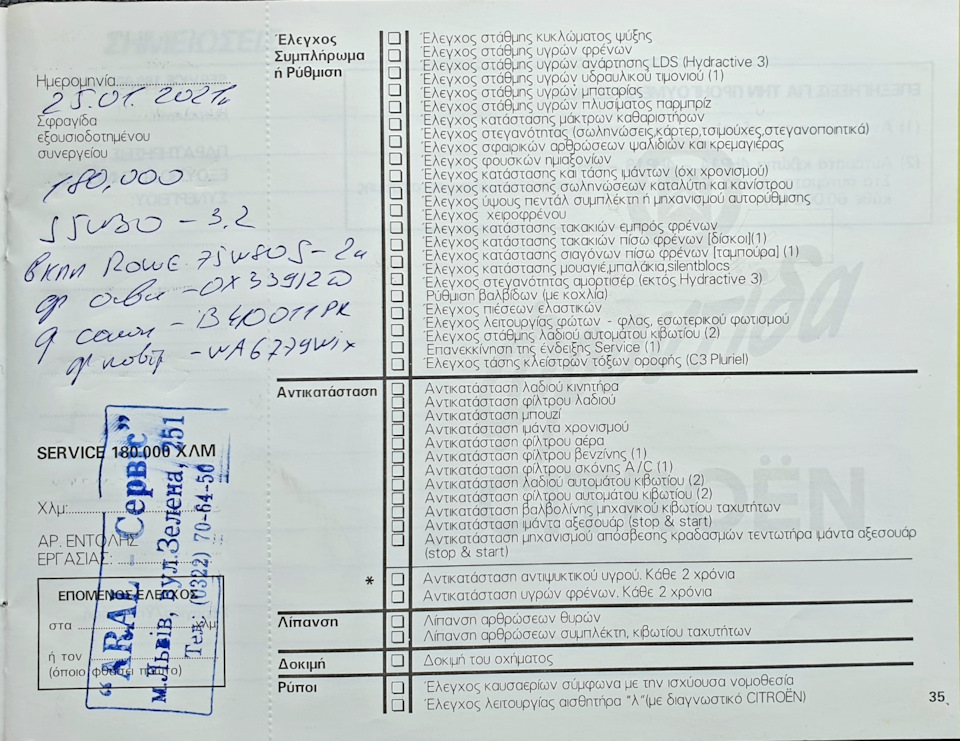 Ημερομηνία
25.01.2021
Σφραγίδα
εξουσιοδοτημένου
συνεργείου
180,000
5W30 - 3.2
в КПП ROWE 75W80S - 2л
ф оливи - OX339/2D
ф салон - B40011PR
ф повітр - WA6779Wix
SERVICE 180.000 ΧΛΜ
Χλμ:
ΑΡ. ΕΝΤΟΛΗΣ
ΕΡΓΑΣΙΑΣ:
ΕΠΟΜΕΝΟΣ ΕΛΕΓΧΟΣ
στα
ή τον
"ARAL - Сервіс"
м.Львів, вул.Зелена, 251
Тел.: (0322) 70-64-50
Έλεγχος
Συμπλήρωμα
ή Ρύθμιση
Έλεγχος στάθμης κυκλώματος ψύξης
Έλεγχος στάθμης υγρών φρένων
Έλεγχος στάθμης υγρών ανάρτησης LDS (Hydractive 3)
Έλεγχος στάθμης υγρών υδραυλικού τιμονιού (1)
Έλεγχος στάθμης υγρών μπαταρίας
Έλεγχος στάθμης υγρών πλυσίματος παρμπρίζ
Έλεγχος κατάστασης μάκτρων καθαριστήρων
Έλεγχος στεγανότητας (σωληνώσεις,κάρτερ,τσιμούχες,στεγανοποιητικά)
Έλεγχος σφαιρικών αρθρώσεων ψαλιδιών και κρεμαγιέρας
Έλεγχος φουσκών ημιαξονίων
Έλεγχος κατάστασης και τάσης ιμάντων (όχι χρονισμού)
Έλεγχος κατάστασης σωληνώσεων καταλύτη και κανίστρου
Έλεγχος ύψους πεντάλ συμπλέκτη ή μηχανισμού αυτορύθμισης
Έλεγχος χειροφρένου
Έλεγχος κατάστασης τακακιών εμπρός φρένων
Έλεγχος κατάστασης τακακιών πίσω φρένων [δίσκοι](1)
Έλεγχος κατάστασης σιαγόνων πίσω φρένων [ταμπούρα] (1)
Έλεγχος κατάστασης μουαγιέ,μπαλάκια,silentblocs
Έλεγχος στεγανότητας αμορτισέρ (εκτός Hydractive 3)
Ρύθμιση βαλβίδων (με κοχλία)
Έλεγχος πιέσεων ελαστικών
Έλεγχος λειτουργίας φώτων - φλας, εσωτερικού φωτισμού
Έλεγχος στάθμης λαδιού αυτομάτου κιβωτίου (2)
Επανεκκίνηση της ένδειξης Service (1)
Έλεγχος τάσης κλείστρών τόξων οροφής (C3 Pluriel)
Αντικατάσταση
Αντικατάσταση λαδιού κινητήρα
Αντικατάσταση φίλτρου λαδιού
Αντικατάσταση μπουζί
Αντικατάσταση ιμάντα χρονισμού
Αντικατάσταση φίλτρου αέρα
Αντικατάσταση φίλτρου βενζίνης (1)
Αντικατάσταση φίλτρου σκόνης A/C (1)
Αντικατάσταση λαδιού αυτομάτου κιβωτίου (2)
Αντικατάσταση φίλτρου αυτομάτου κιβωτίου (2)
Αντικατάσταση βαλβολίνης μηχανικού κιβωτίου ταχυτήτων
Αντικατάσταση ιμάντα αξεσουάρ (stop & start)
Αντικατάσταση μηχανισμού απόσβεσης κραδασμών τεντωτήρα ιμάντα αξεσουάρ
(stop & start)
* Αντικατάσταση αντιψυκτικού υγρού. Κάθε 2 χρόνια
Αντικατάσταση υγρών φρένων. Κάθε 2 χρόνια
Λίπανση
Λίπανση αρθρώσεων θυρών
Λίπανση αρθρώσεων συμπλέκτη, κιβωτίου ταχυτήτων
Δοκιμή
Δοκιμή του οχήματος
Ρύποι
Έλεγχος καυσαερίων σύμφωνα με την ισχύουσα νομοθεσία
Έλεγχος λειτουργίας αισθητήρα "λ"(με διαγνωστικό CITROËN)
35